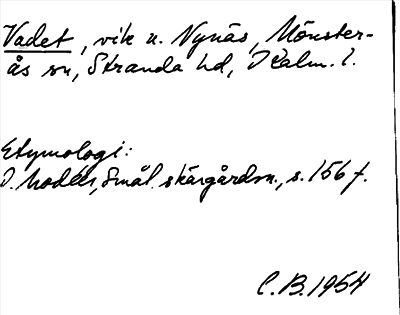 Vadet, vik u. Nynäs, Mönster-
ås sn, Stranda hd, Kalm. l.
Etymologi:
I. Modéer, Smål. skärgårdsn., s. 156 f.
C.B. 1954